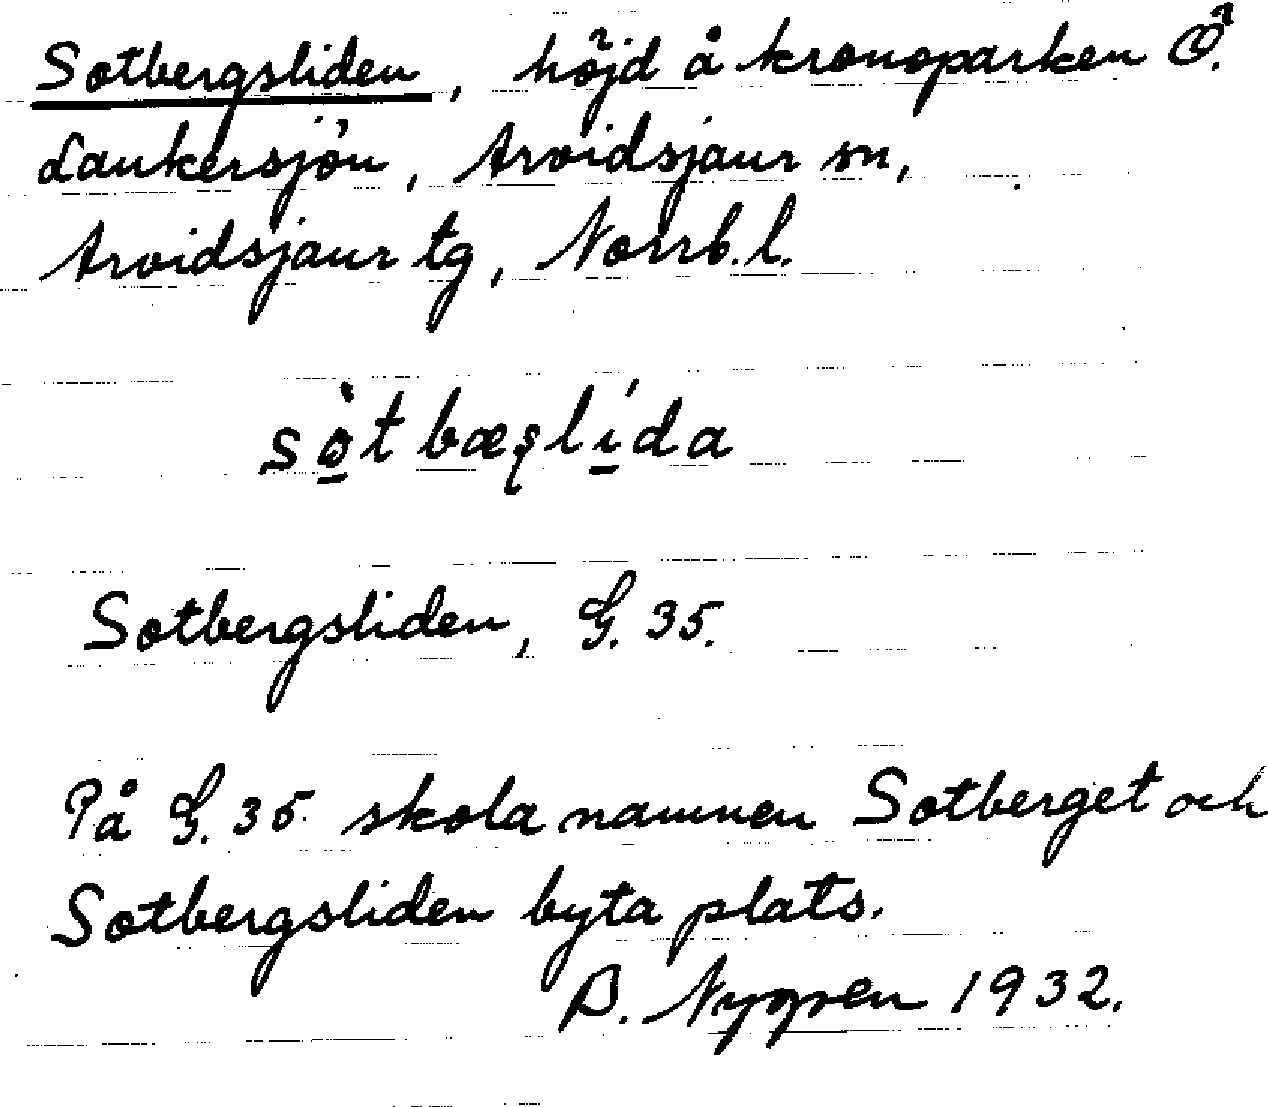 Sotbergsliden, höjd å kronoparken Ö.
Lankersjön, Arvidsjaur sn,
Arvidsjaur tg, Norrb.l.
sò̱tbæșlí̱da
Sotbergsliden, G. 35.
På G. 35. skola namnen Sotberget och
Sotbergsliden byta plats.
B. Nygren 1932.